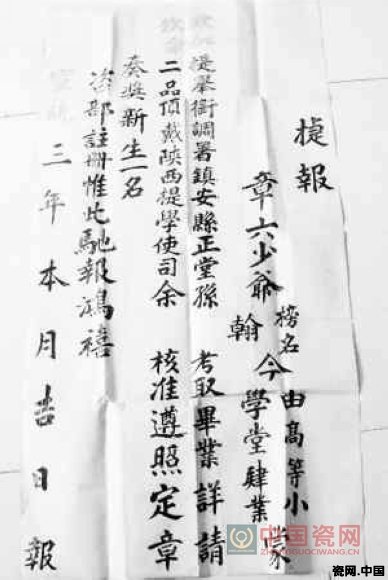 捷報
章六少爺榜名翰今由高等小學堂肄業蒙
提舉銜調署鎮安縣正堂孫 考取畢業詳請
二品頂戴陝西提學使司余 核准遵照定章
奏獎新生一名
咨部註冊惟此馳報鴻禧
三年本月吉日報
中国瓷网
ZHONGGUOCIWANG.COM
瓷网.中国